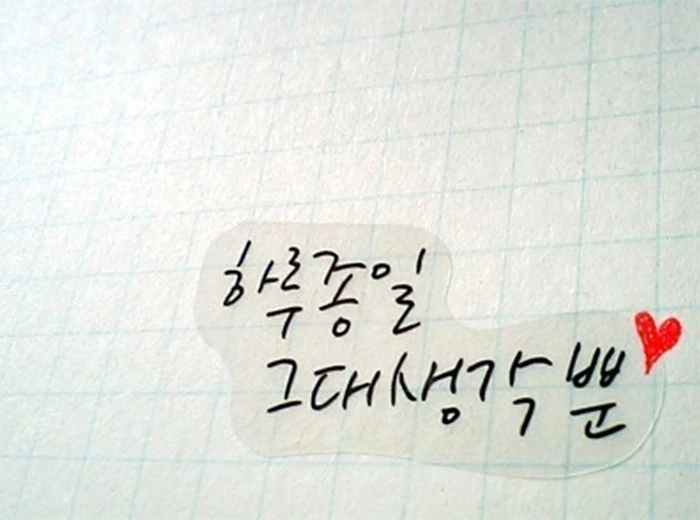 하루종일
그대생각뿐